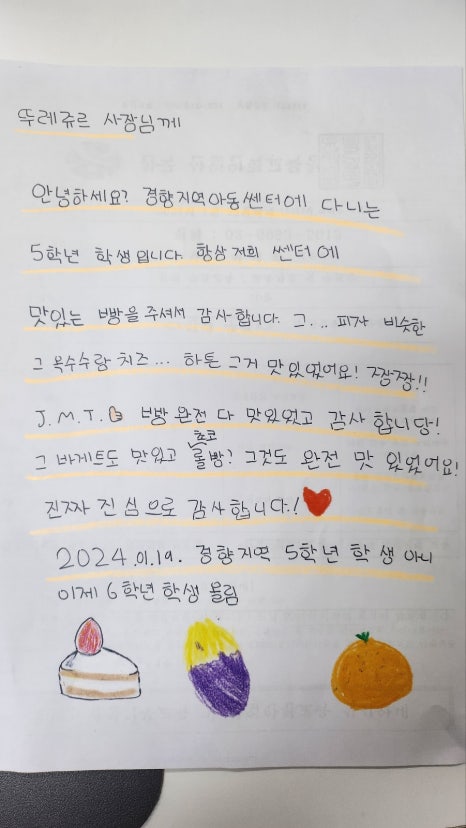 뚜레쥬르 사장님께
안녕하세요? 경향지역아동쎈터에 다니는
5학년 학생입니다. 항상 저희 쎈터에
맛있는 빵을 주셔서 감사합니다. 그... 피자 비슷한
그 옥수수랑 치즈... 하튼 그거 맛있었어요! 짱짱!!
J.M.T. 빵 완전 다 맛있었고 감사합니당!
그 바게트도 맛있고 초코롤빵? 그것도 완전 맛있었어요!
진짜 진심으로 감사합니다!
2024.01.19. 경향지역 5학년 학생 아니
이제 6학년 학생 올림